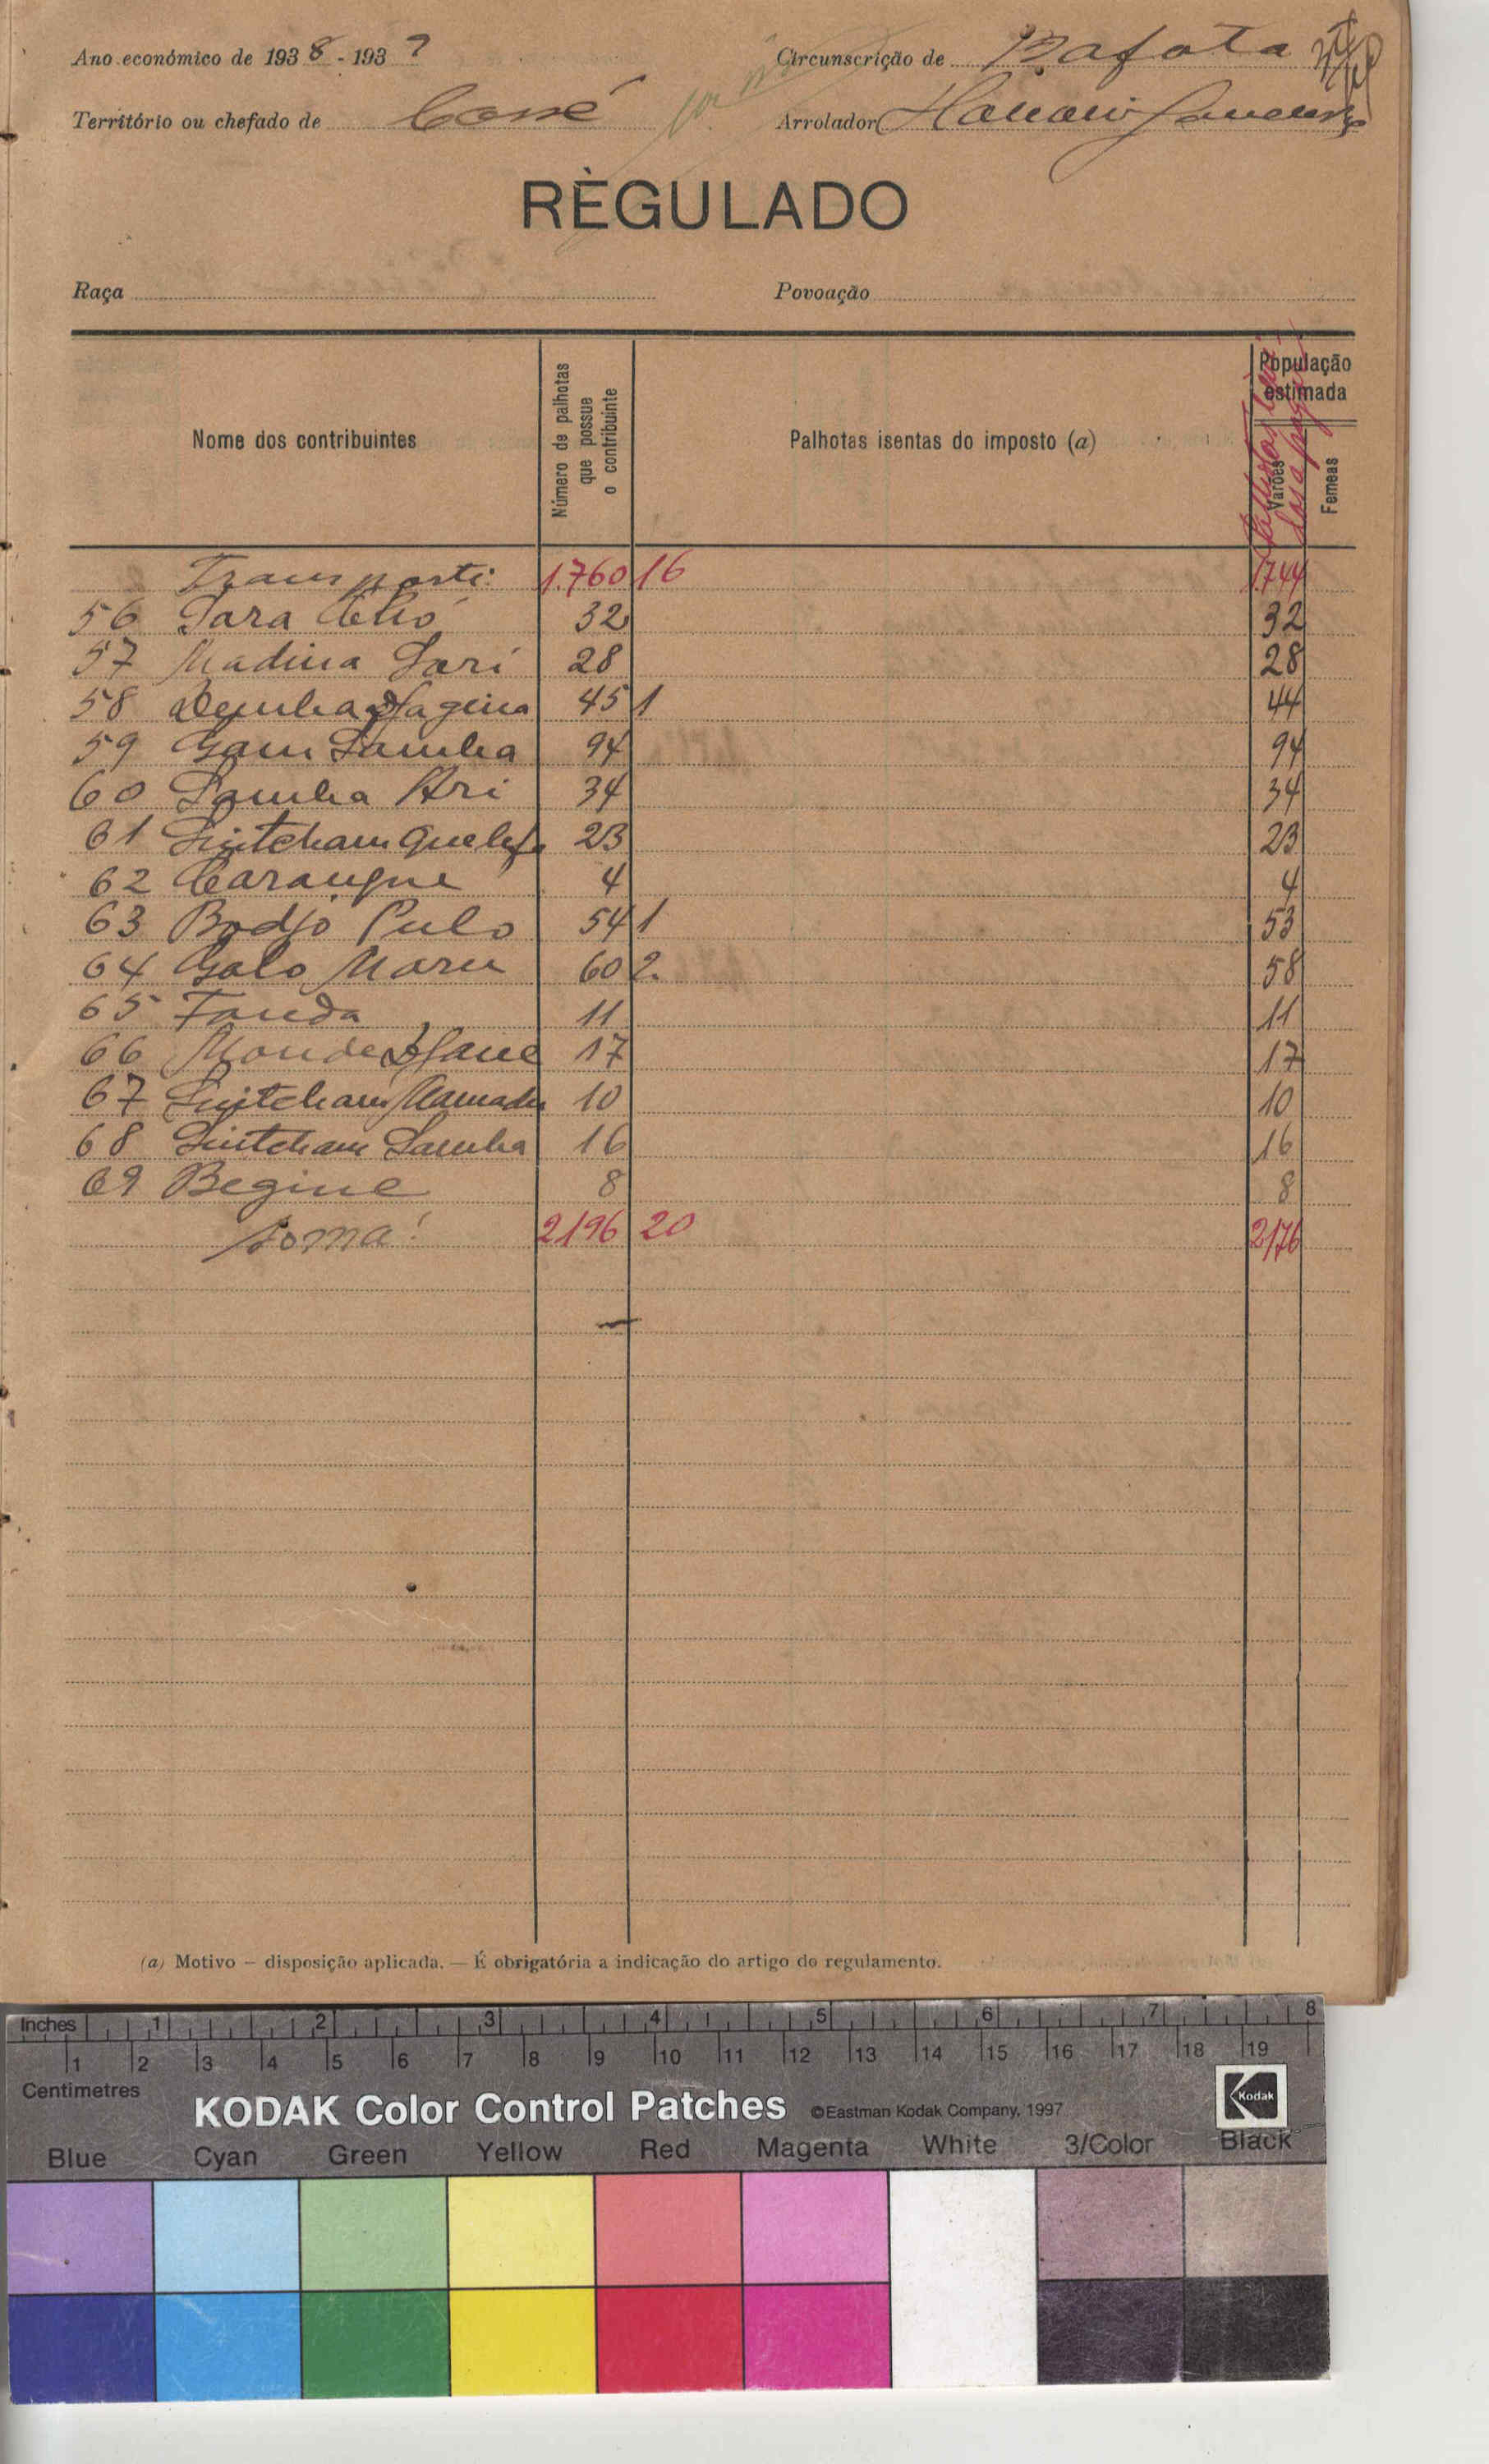 Ano económico de 1938 - 193?
Circunscrição de Bafata
Território ou chefado de Cossé
Arrolador
RÈGULADO
Raça
Povoação
Nome dos contribuintes
Número de palhotas que possue o contribuinte
Palhotas isentas do imposto (a)
População estimada
Varões
Femeas
Transporte: 1.760 16 1.744
56 Sara 32 32
57 Madina Sari 28 28
58 Demba 45 1 44
59 Gam Samba 94 94
60 Samba Ari 34 34
61 Sintcham Quelefe 23 23
62 4 4
63 Bodjo Pulo 54 1 53
64 Galo Maru 60 2. 58
65 Fanda 11 11
66 17 17
67 Sintcham Mamadu 10 10
68 Sintcham Samba 16 16
69 Begine 8 8
Soma: 2196 20 2176
(a) Motivo — disposição aplicada. — É obrigatória a indicação do artigo do regulamento.
Inches 1 2 3 4 5 6 7 8
1 2 3 4 5 6 7 8 9 10 11 12 13 14 15 16 17 18 19
Centimetres
KODAK Color Control Patches ©Eastman Kodak Company, 1997 Kodak
Blue Cyan Green Yellow Red Magenta White 3/Color Black